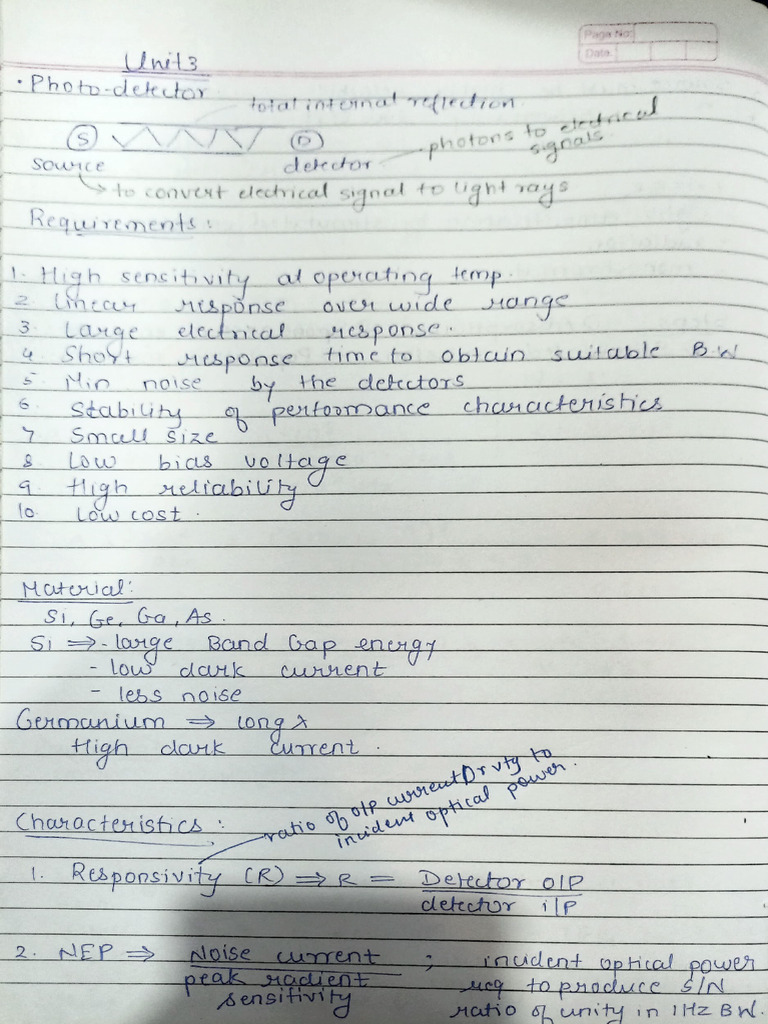 Page No:
Date:
Unit 3
• Photo-detector
total internal reflection
S D
source detector
photons to electrical
signals
to convert electrical signal to light rays
Requirements:
1. High sensitivity at operating temp.
2 Linear response over wide range
3. Large electrical response.
4 Short response time to obtain suitable B.W
5 Min noise by the detectors
6 Stability of performance characteristics
7 Small size
8 Low bias voltage
9 High reliability
10. Low cost.
Material:
Si, Ge, Ga, As.
Si ⇒ - large Band Gap energy
- low dark current
- less noise
Germanium ⇒ long λ
High dark current.
Characteristics:
ratio of o/p current to
incident optical power.
1. Responsivity (R) ⇒ R = Detector O/P
detector i/P
2. NEP ⇒ Noise current ; incident optical power
peak radient req to produce S/N
sensitivity ratio of unity in 1Hz BW.